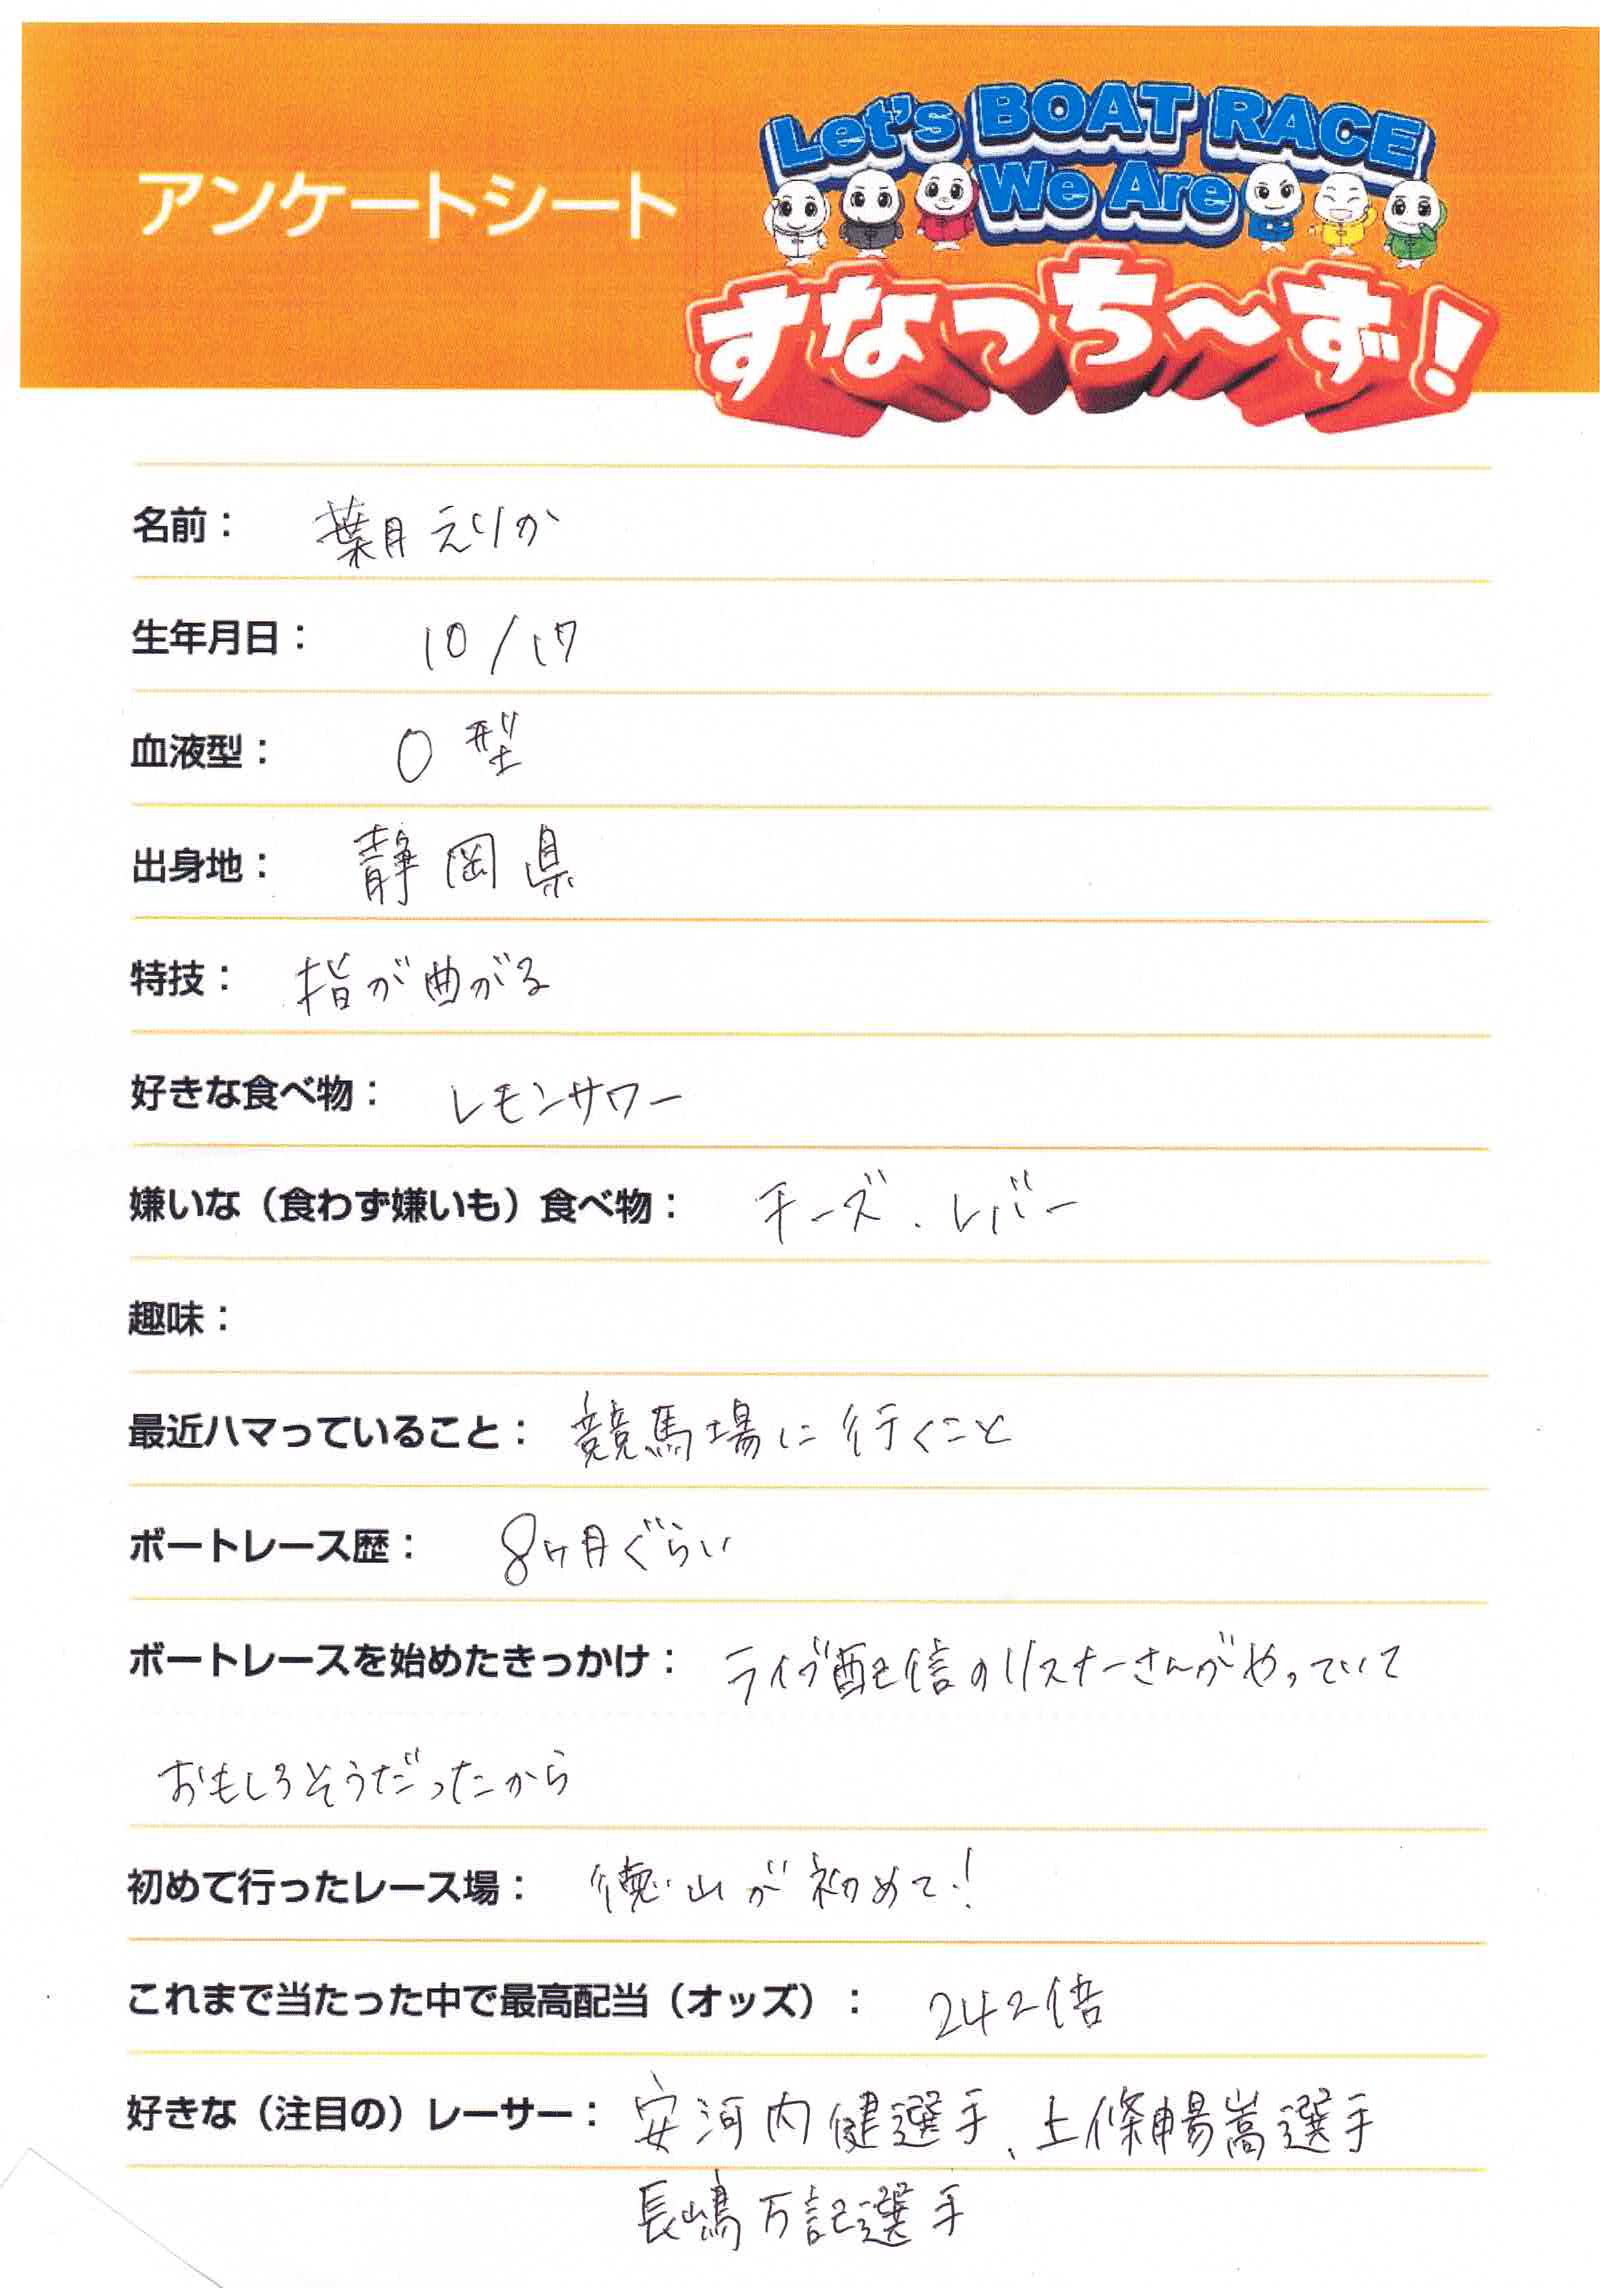 アンケートシート
Let's BOAT RACE
We Are
すなっち〜ず!
名前： 葉月えりか
生年月日： 10/17
血液型： O型
出身地： 静岡県
特技： 指が曲がる
好きな食べ物： レモンサワー
嫌いな（食わず嫌いも）食べ物： チーズ、レバー
趣味：
最近ハマっていること： 競馬場に行くこと
ボートレース歴： 8ヶ月ぐらい
ボートレースを始めたきっかけ： ライブ配信のリスナーさんがやっていて
おもしろそうだったから
初めて行ったレース場： 徳山が初めて!
これまで当たった中で最高配当（オッズ）： 242倍
好きな（注目の）レーサー： 安河内健選手、上條暢嵩選手
長嶋万記選手